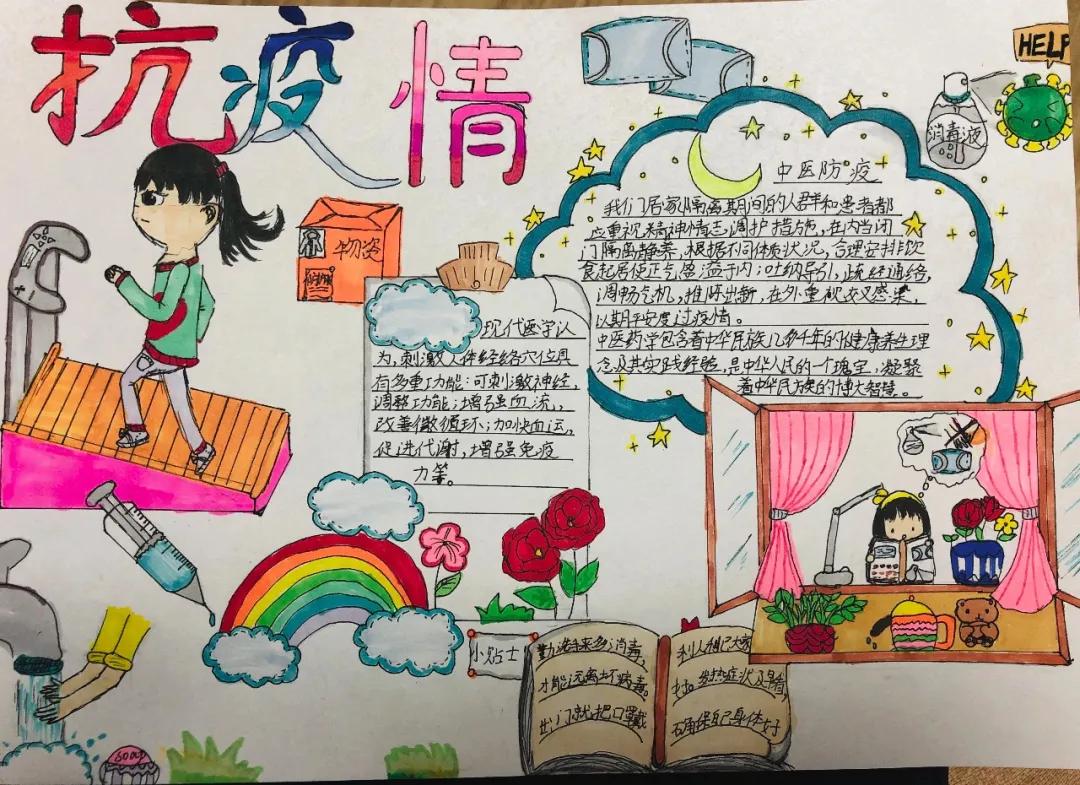 抗疫情
HELP
消毒液
物资
中医防疫
我们居家隔离期间的人群和患者都
应重视精神情志调护措施，在内当闭
门隔离静养，根据不同体质状况，合理安排饮
食起居使正气盈溢于内；吐纳导引，疏经通络，
调畅气机，推陈出新，在外重视交叉感染，
以期平安度过疫情。
中医药学包含着中华民族几千年的健康养生理
念及其实践经验，是中华人民的一个瑰宝，凝聚
着中华民族的博大智慧。
现代医学认
为，刺激人体经络穴位具
有多重功能：可刺激神经，
调整功能；增强血流，
改善微循环；加快血运，
促进代谢，增强免疫
力等。
小贴士
勤洗手来多消毒，
才能远离坏病毒。
出门就把口罩戴
利人利己大家
好。发热症状及早看，
确保自己身体好
soap